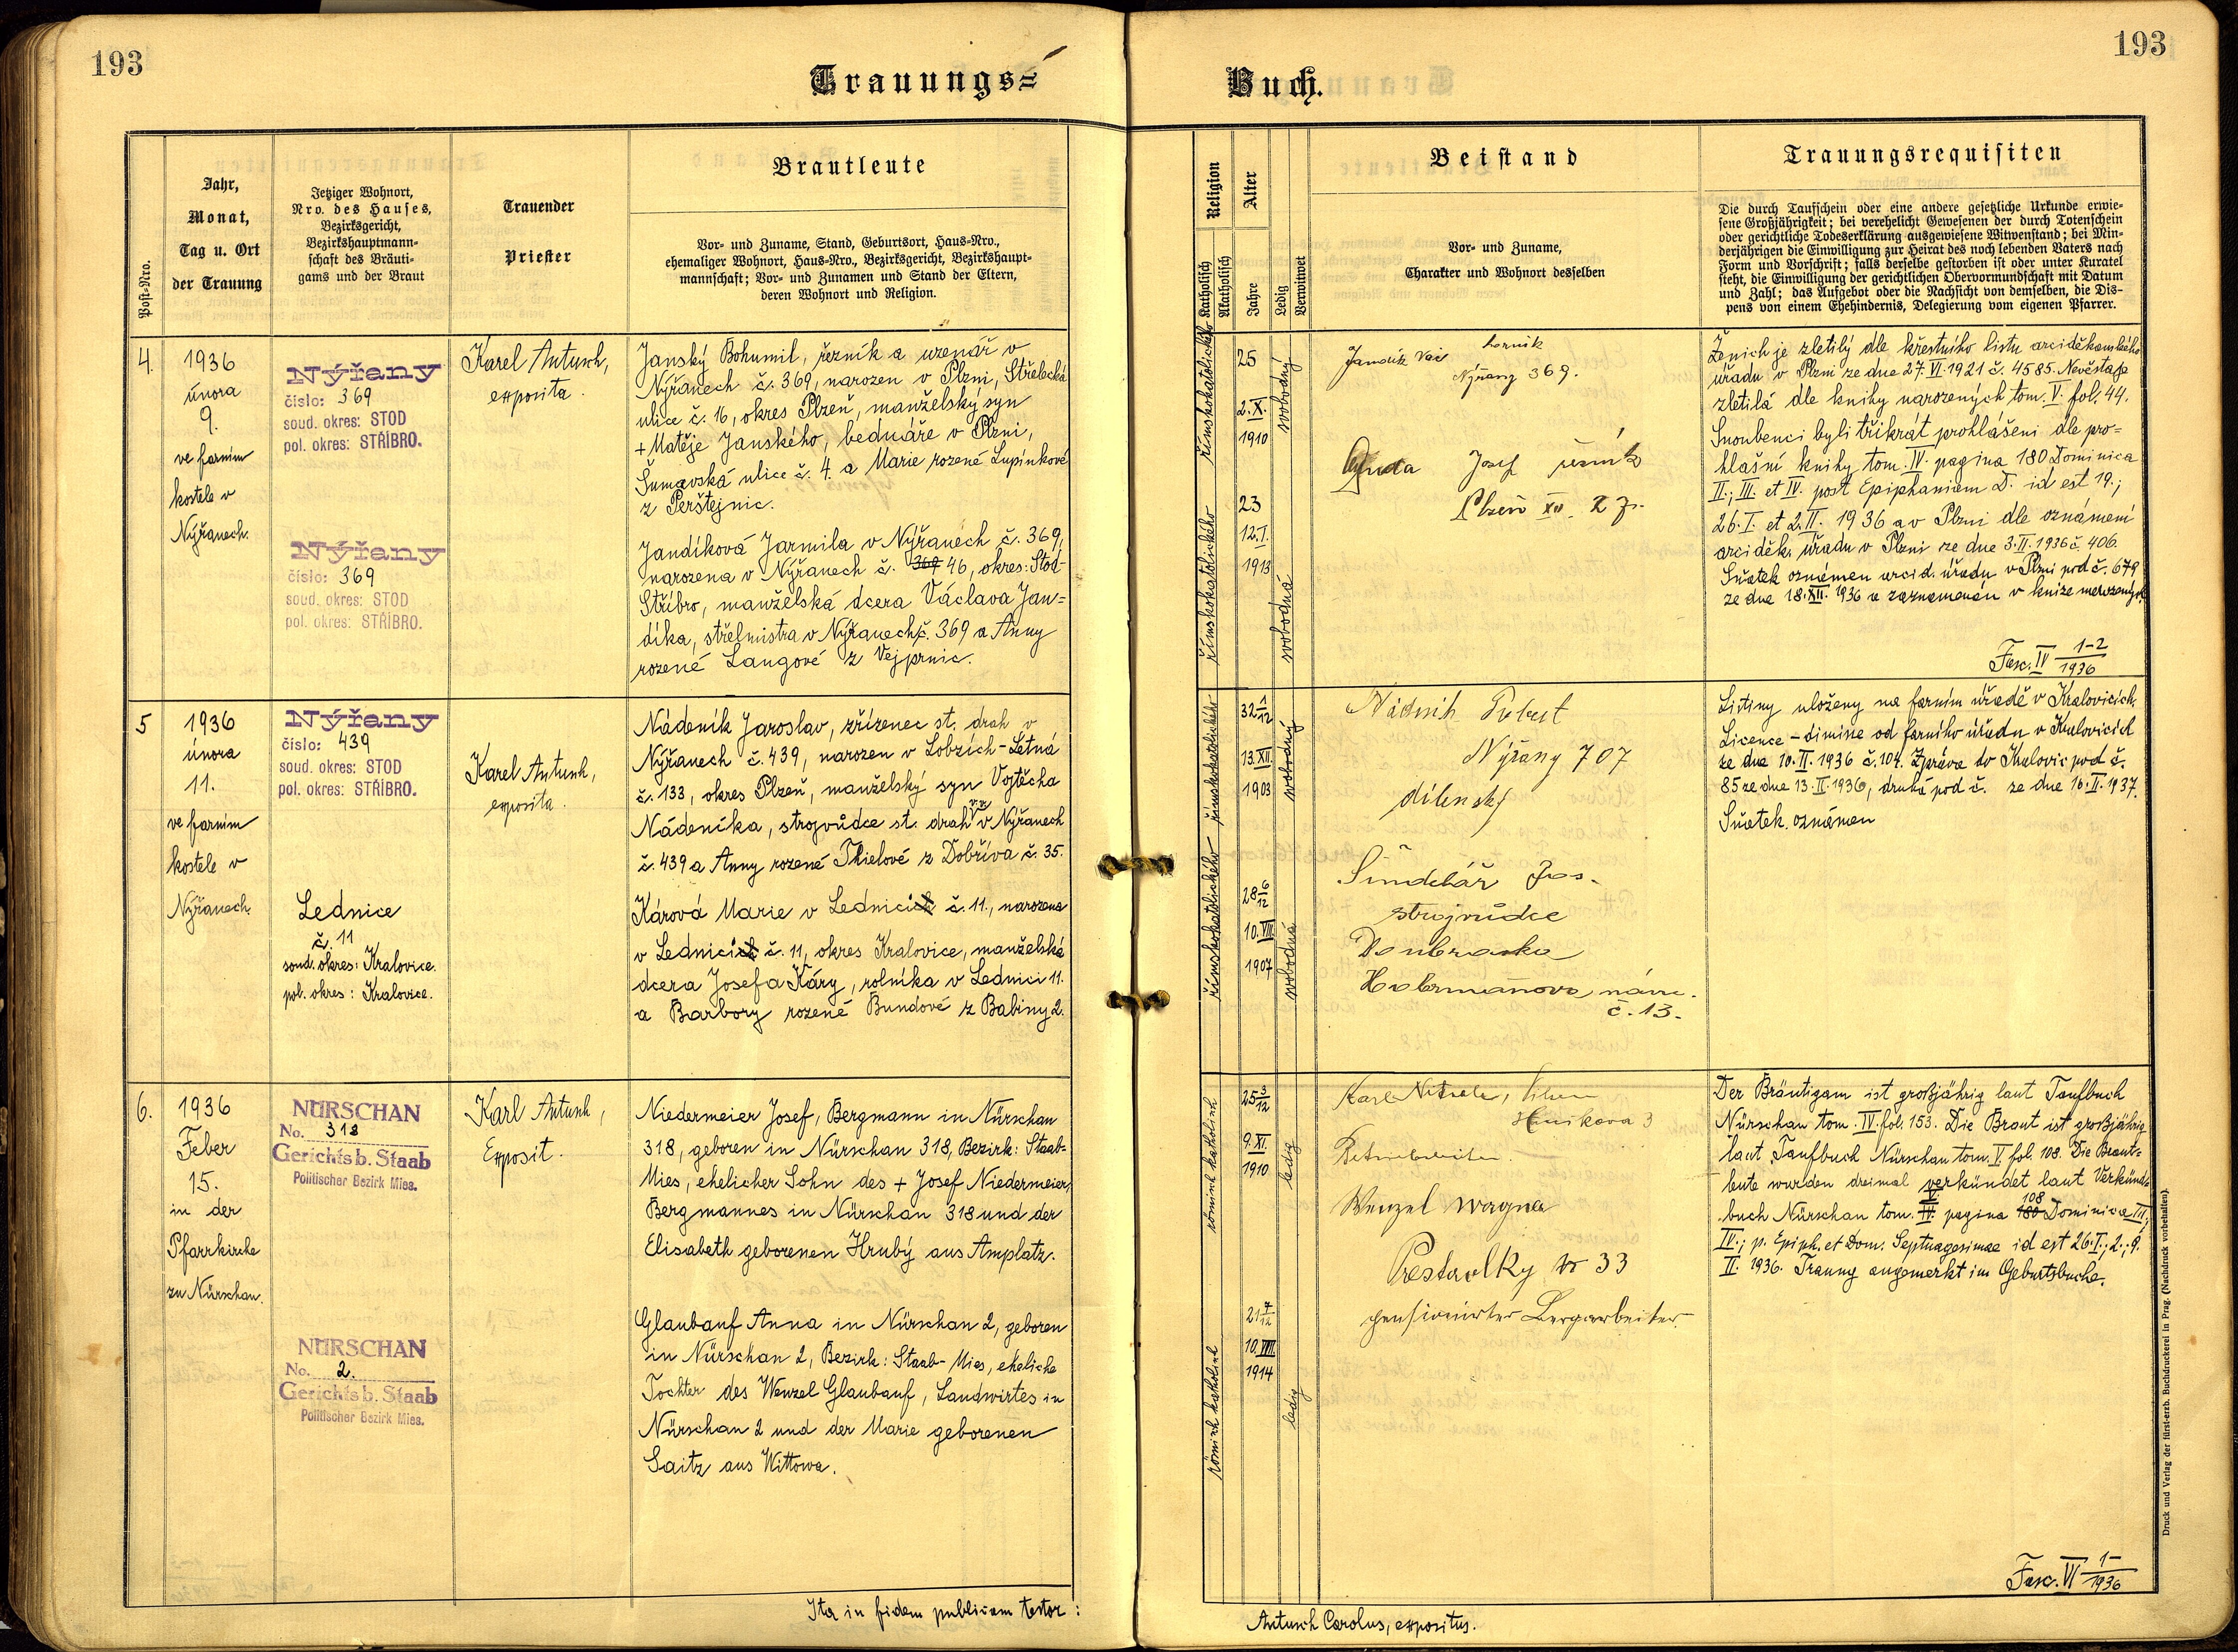 193
Trauungs=
Jahr,
Monat,
Tag u. Ort
der Trauung
Post=Nro.
Jetziger Wohnort,
Nro. des Hauses,
Bezirksgericht,
Bezirkshauptmann=
schaft des Bräuti=
gams und der Braut
Trauender
Priester
Brautleute
Vor= und Zuname, Stand, Geburtsort, Haus=Nro.,
ehemaliger Wohnort, Haus=Nro., Bezirksgericht, Bezirkshaupt=
mannschaft; Vor= und Zunamen und Stand der Eltern,
deren Wohnort und Religion.
4.
1936
února
9.
ve farním
kostele v
Nýřanech.
Nýřany
číslo: 369
soud. okres: STOD
pol. okres: STŘÍBRO.
Nýřany
číslo: 369
soud. okres: STOD
pol. okres: STŘÍBRO.
Karel Antusch,
exposita.
Janský Bohumil, řezník a uzenář v
Nýřanech č. 369, narozen v Plzni, Střelecká
ulice č. 16, okres Plzeň, manželský syn
+ Matěje Janského, bednáře v Plzni,
Šumavská ulice č. 4. a Marie rozené Lupínkové
z Perštejnic.
Jandíková Jarmila v Nýřanech č. 369,
narozena v Nýřanech č. 369 46, okres: Stod-
Stříbro, manželská dcera Václava Jan=
díka, střelmistra v Nýřanech č. 369 a Anny
rozené Langové z Vejprnic.
5
1936
února
11.
ve farním
kostele v
Nýřanech.
Nýřany
číslo: 439
soud. okres: STOD
pol. okres: STŘÍBRO.
Lednice
č. 11
soud. okres: Kralovice.
pol. okres: Kralovice.
Karel Antusch,
exposita.
Nádeník Jaroslav, zřízenec st. drah v
Nýřanech č. 439, narozen v Lobzích-Letná
č. 133, okres Plzeň, manželský syn Vojtěcha
Nádeníka, strojvůdce st. drah v. v. v Nýřanech
č. 439 a Anny rozené Thielové z Dobříva č. 35.
Kárová Marie v Lednici č. 11., narozena
v Lednici č. 11, okres Kralovice, manželská
dcera Josefa Káry, rolníka v Lednici 11.
a Barbory rozené Bundové z Babiny 2.
6.
1936
Feber
15.
in der
Pfarrkirche
zu Nürschan.
NÜRSCHAN
No. 318
Gerichtsb. Staab
Politischer Bezirk Mies.
NÜRSCHAN
No. 2.
Gerichtsb. Staab
Politischer Bezirk Mies.
Karl Antusch,
Exposit.
Niedermeier Josef, Bergmann in Nürschan
318, geboren in Nürschan 318, Bezirk: Staab-
Mies, ehelicher Sohn des + Josef Niedermeier,
Bergmannes in Nürschan 318 und der
Elisabeth geborenen Hrubý aus Amplatz.
Glaubauf Anna in Nürschan 2, geboren
in Nürschan 2, Bezirk: Staab-Mies, eheliche
Tochter des Wenzel Glaubauf, Landwirtes in
Nürschan 2 und der Marie geborenen
Saitz aus Wittowa.
Ita in fidem publicam testor:
193
Buch.
Religion
Katholisch
Akatholisch
Alter
Jahre
Ledig
Verwitwet
Beistand
Vor= und Zuname,
Charakter und Wohnort desselben
Trauungsrequisiten
Die durch Taufschein oder eine andere gesetzliche Urkunde erwie=
sene Großjährigkeit; bei verehelicht Gewesenen der durch Totenschein
oder gerichtliche Todeserklärung ausgewiesene Witwenstand; bei Min=
derjährigen die Einwilligung zur Heirat des noch lebenden Vaters nach
Form und Vorschrift; falls derselbe gestorben ist oder unter Kuratel
steht, die Einwilligung der gerichtlichen Obervormundschaft mit Datum
und Zahl; das Aufgebot oder die Nachsicht von demselben, die Dis=
pens von einem Ehehindernis, Delegierung vom eigenen Pfarrer.
římskokatolického
25
2. X.
1910
svobodný
římskokatolického
23
12. I.
1913
svobodná
Jandík Vác horník
Nýřany 369.
Duda Josef řezník
Plzeň XII.
Ženich je zletilý dle křestního listu arciděkanského
úřadu v Plzni ze dne 27. VI. 1921 č. 4585. Nevěsta je
zletilá dle knihy narozených tom. V. fol. 44.
Snoubenci byli třikrát prohlášeni dle pro=
hlašní knihy tom. IV. pagina 180 Dominica
II.; III. et IV. post Epiphaniam D. id est 19.;
26. I. et 2. II. 1936 a v Plzni dle oznámení
arciděk. úřadu v Plzni ze dne 3. II. 1936 č. 406.
Sňatek oznámen arcid. úřadu v Plzni pod č. 679
ze dne 18. XII. 1936 a zaznamenán v knize narozených.
Fasc. IV 1-2/1936
římskokatolického
32 1/12
13. XII.
1903
svobodný
římskokatolického
28 6/12
10. VIII.
1907
svobodná
Nádeník
Nýřany 707
dílenský
Šindelář Jos.
strojvůdce
Doubravka
Habrmanovo nám.
č. 13.
Listiny uloženy na farním úřadě v Kralovicích.
Licence-dimisse od farního úřadu v Kralovicích
ze dne 10. II. 1936 č. 104. Zpráva do Kralovic pod č.
85 ze dne 13. II. 1936, druhá pod č. ze dne 16. II. 1937.
Sňatek oznámen
römisch katholisch
25 3/12
9. XI.
1910
ledig
römisch katholisch
21 7/12
10. VIII
1914
ledig
Karl
3
Wenzel Wagner
Prestavlky No 33
pensionierter Bergarbeiter.
Der Bräutigam ist großjährig laut Taufbuch
Nürschan tom. IV. fol. 153. Die Braut ist großjährig
laut Taufbuch Nürschan tom. V. fol. 108. Die Braut=
leute wurden dreimal verkündet laut Verkünd=
buch Nürschan tom. IV. V. pagina 180 108 Dominica III.;
IV.; p. Epiph. et Dom. Septuagesimae id est 26. I.; 2.; 9.
II. 1936. Trauung angemerkt im Geburtsbuche.
Fasc. VI 1-/1936
Antusch Carolus, expositus.
Druck und Verlag der fürst-erzb. Buchdruckerei in Prag. (Nachdruck vorbehalten).